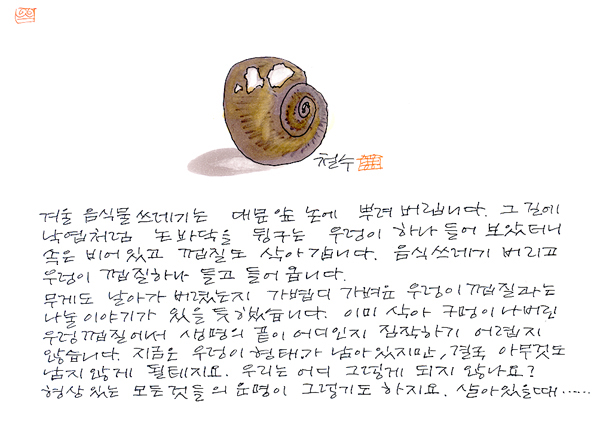 철수
겨울 음식물쓰레기는 대문앞 논에 뿌려 버립니다. 그 길에
낙엽처럼 논바닥을 뒹구는 우렁이 하나 들어 보았더니
속은 비어있고 껍질도 삭아 갑니다. 음식쓰레기 버리고
우렁이 껍질하나 들고 들어 옵니다.
무게도 날아가 버렸는지 가볍디 가벼운 우렁이 껍질과는
나눌 이야기가 있을 듯 하였습니다. 이미 삭아 구멍이 나버린
우렁껍질에서 생명의 끝이 어디인지 짐작하기 어렵지
않습니다. 지금은 우렁이 형태가 남아 있지만, 결국 아무것도
남지 않게 될테지요. 우리는 어디 그렇게 되지 않나요?
형상 있는 모든것들의 운명이 그렇기도 하지요. 살아있을 때······